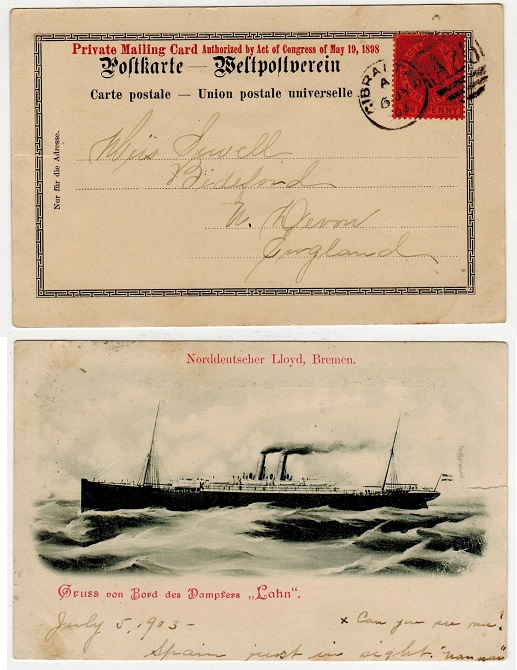 Private Mailing Card Authorized by Act of Congress of May 19, 1898
Postkarte — Weltpostverein
Carte postale — Union postale universelle
Nur für die Adresse.
GIBRAL
A
A26
ONE PENNY
Miss Sewell
Bideford
N. Devon
England
Norddeutscher Lloyd, Bremen.
Gruss von Bord des Dampfers „Lahn".
July 5, 1903 –
x Can you see me?
Spain just in sight.